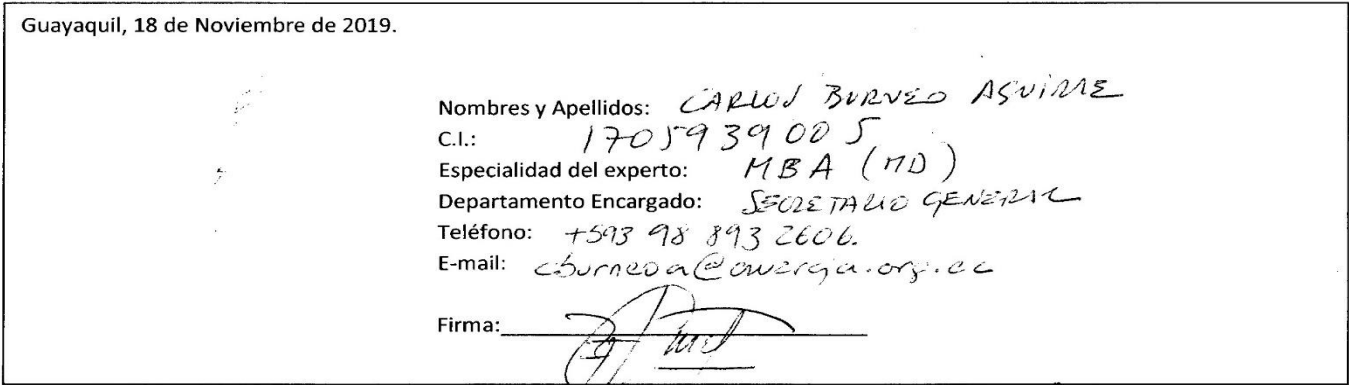 Guayaquil, 18 de Noviembre de 2019.
Nombres y Apellidos: CARLOS BURNEO AGUIRRE
C.I.: 1705939005
Especialidad del experto: MBA (MD)
Departamento Encargado: SECRETARIO GENERAL
Teléfono: +593 98 893 2606.
E-mail:
Firma: